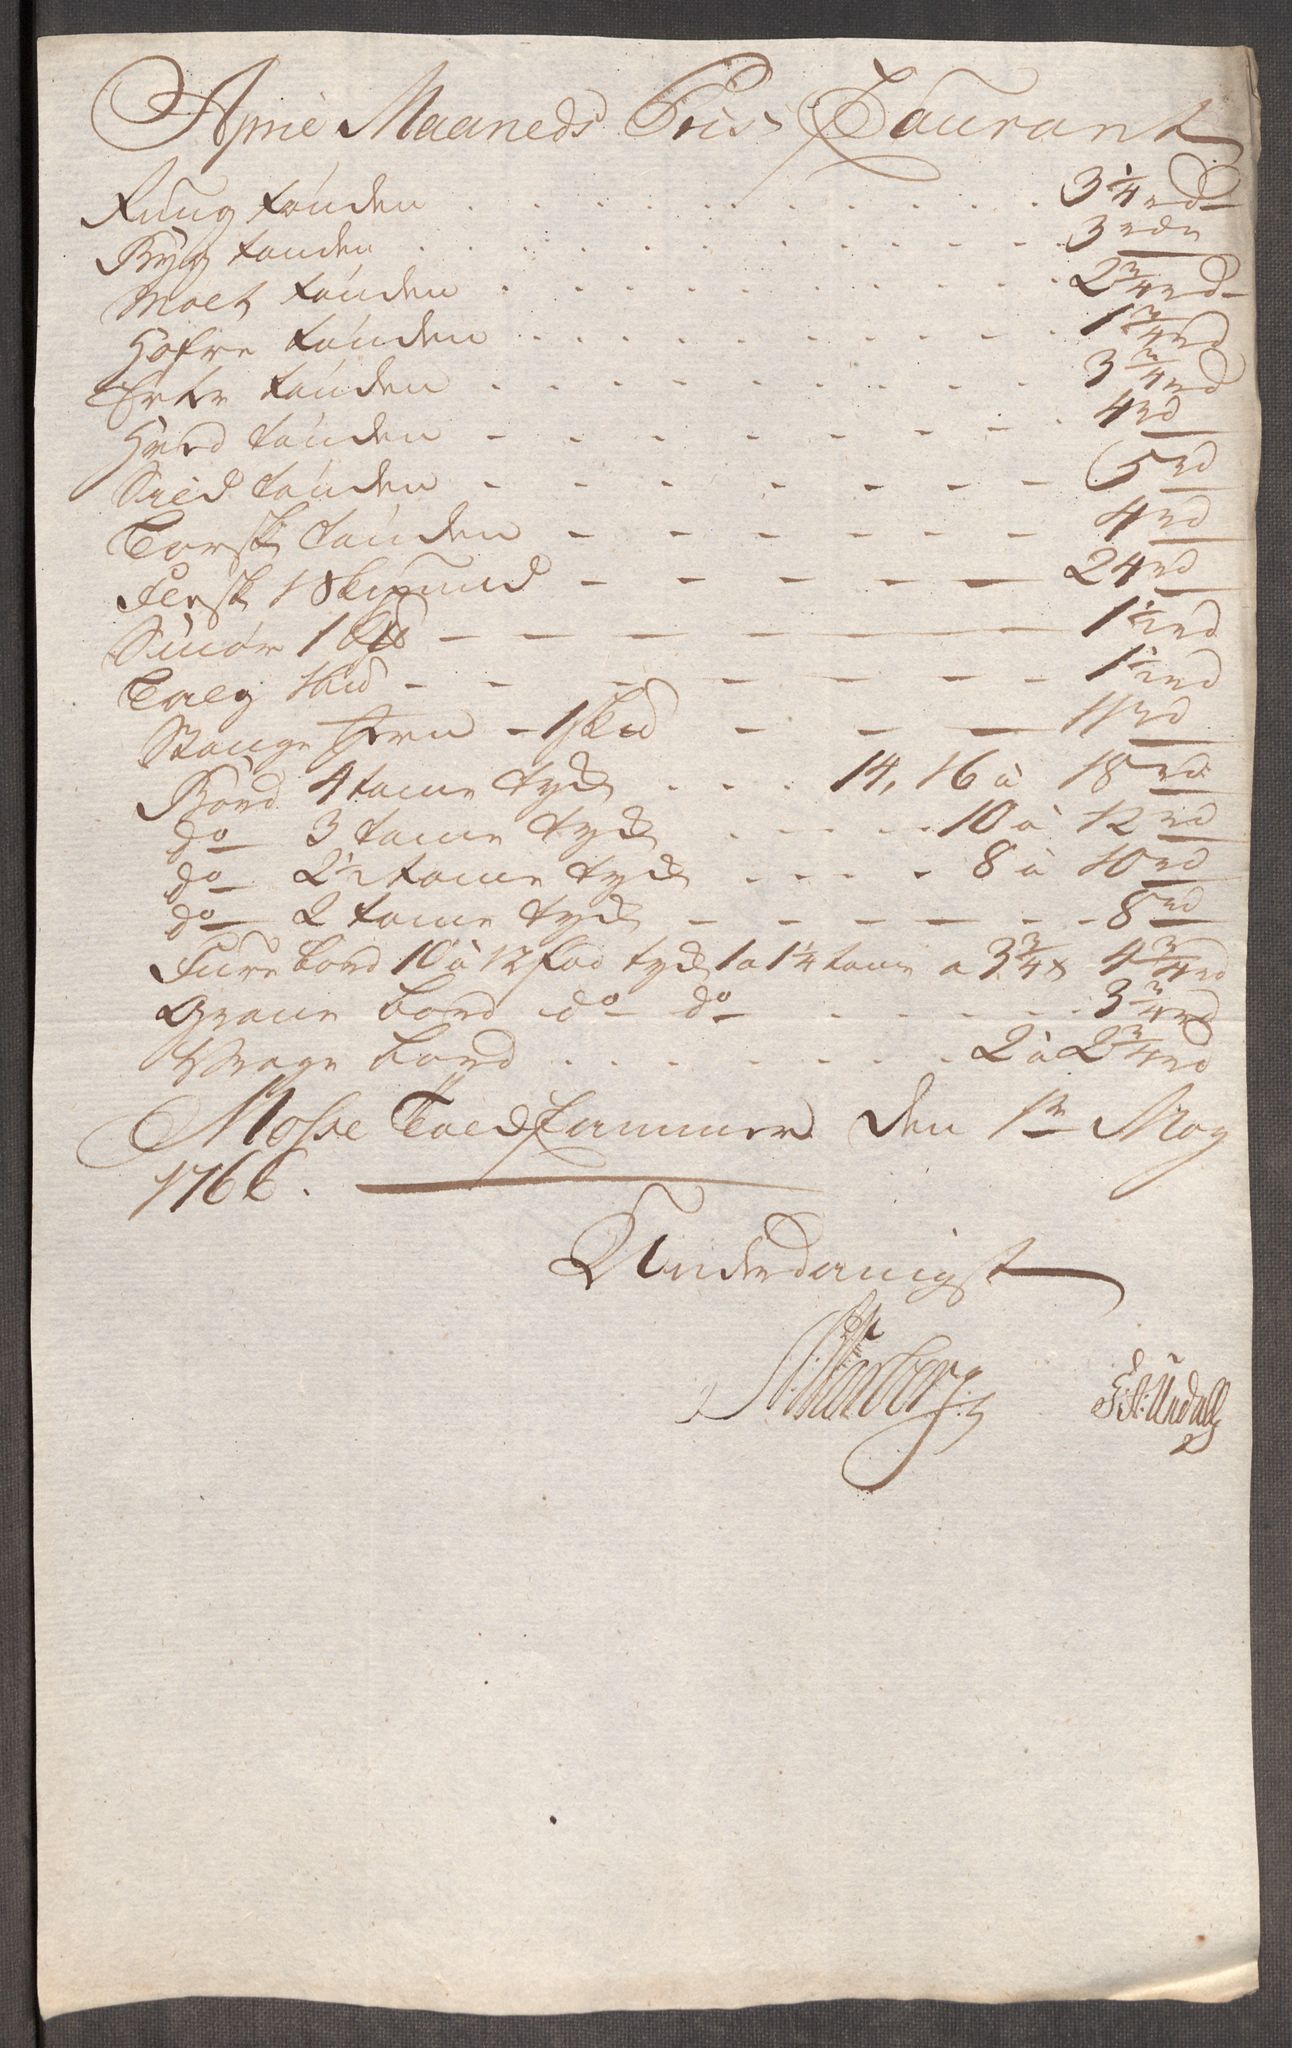 Aprie Maaneds Pris Courant
Rung tønden . . . . . . . 3 1/4 rd
Byg tønden . . . . . . . 3 rdr
Malt tønden . . . . . . . 2 3/4 rd
Hafre tønden . . . . . . . 1 3/4 rd
Erter tønden . . . . . . . 3 3/4 rd
tønden - . . . . . . . 4 rd
Sild tønden - . . . . . . 5 rd
Torsk tønden - - - - - - 4 rd
Flesk 1 Skipund - - - - - 24 rd
Smør 1 - - - - - - 1 1/2 rd
Talg - - - - - - - 1 1/2 rd
Stange Jern - 1 - - - 11 rd
Bord 4 tome tyde . . . 14, 16 à 18 rd
do 3 tome tyde . . . . . 10 à 12 rd
do 2 1/2 tome tyde . . . . 8 à 10 rd
do 2 tome tyde - - - - - - 8 rd
Fure bord 10 à 12 fod tyde 1 a 1 1/4 tome a 3 3/4 4 3/4 rd
Grane bord do do . . . . . . 3 3/4 rd
Vrage bord . . . . . . . 2 à 2 3/4 rd
Mosse Toldkammer den 1te May
1766.
Underdanigst